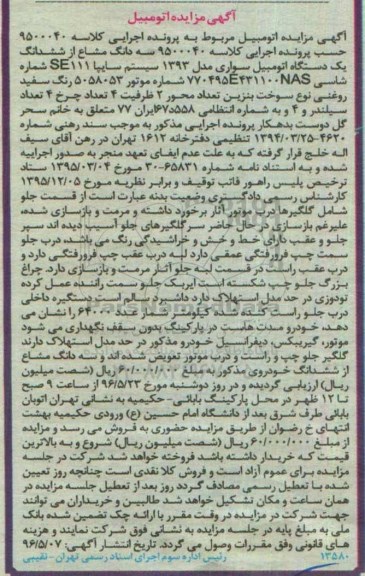 آگهی مزایده اتومبیل
آگهی مزایده اتومبیل مربوط به پرونده اجرایی کلاسه ۹۵۰۰۰۴۰
حسب پرونده اجرایی کلاسه ۹۵۰۰۰۴۰ سه دانگ مشاع از ششدانگ
یک دستگاه اتومبیل سواری مدل ۱۳۹۳ سیستم سایپا SE۱۱۱ شماره
شاسی ۷۷۰۴۹۵E۴۳۱۱۰۰NAS شماره موتور ۵۰۵۸۰۵۳ رنگ سفید
روغنی نوع سوخت بنزین تعداد محور ۲ ظرفیت ۴ تعداد چرخ ۴ تعداد
سیلندر و ۴ و به شماره انتظامی ۵۵۸د۶۷ایران ۷۷ متعلق به خانم سحر
گل دوست بدهکار پرونده اجرایی مذکور به موجب سند رهنی شماره
۴۶۲۰-۱۳۹۴/۰۳/۲۵ تنظیمی دفترخانه ۱۶۱۲ تهران در رهن آقای سیف
اله خلج قرار گرفته که به علت عدم ایفای تعهد منجر به صدور اجراییه
شده و به استناد نامه شماره ۳۰-۶۵۸۳۱ مورخ ۱۳۹۵/۰۳/۰۴ ستاد
ترخیص پلیس راهور فاتب توقیف و برابر نظریه مورخ ۱۳۹۵/۱۲/۰۵
کارشناس رسمی دادگستری وضعیت بدنه عبارت است از قسمت جلو
شامل گلگیرها درب موتور آثار برخورد داشته و مرمت و بازسازی شده،
علیرغم بازسازی در حال حاضر سر گلگیرهای جلو آسیب دیده اند سپر
جلو و عقب دارای خط و خش و خراشیدگی رنگ می باشد، درب جلو
سمت چپ فرورفتگی عمقی دارد لبه درب عقب چپ فرورفتگی دارد و
درب عقب راست در قسمت لبه جلو آثار مرمت و بازسازی دارد. چراغ
بزرگ جلو چپ شکسته است ایربک جلو سمت راننده عمل کرده
تودوزی در حد مدل استهلاک دارد داشبرد سالم است دستگیره داخلی
درب جلو راست کنده شده کیلومتر شمار عدد ۶۴۰۰۰ را نشان می
دهد، خودرو مدت هاست در پارکینگ بدون سقف نگهداری می شود
موتور، گیربکس، دیفرانسیل خودرو مذکور در حد مدل استهلاک دارند
گلگیر جلو چپ و راست و درب موتور تعویض شده اند، سه دانگ مشاع
از ششدانگ خودروی مذکور به مبلغ ۶۰/۰۰۰/۰۰۰ ریال (شصت میلیون
ریال) ارزیابی گردیده و در روز دوشنبه مورخ ۹۶/۵/۲۳ از ساعت ۹ صبح
تا ۱۲ ظهر در محل پارکینگ بابائی- حکیمیه به نشانی تهران اتوبان
بابائی طرف شرق بعد از دانشگاه امام حسین (ع) ورودی حکیمیه بهشت
انتهای خ رضوان از طریق مزایده حضوری به فروش می رسد و مزایده
از مبلغ ۶۰/۰۰۰/۰۰۰ ریال (شصت میلیون ریال) شروع و به بالاترین
قیمت که خریدار داشته باشد فروخته خواهد شد شرکت در جلسه
مزایده برای عموم آزاد است و فروش کلا نقدی است چنانچه روز تعیین
شده با تعطیل رسمی مصادف گردد روز بعد از تعطیل جلسه مزایده در
همان ساعت و مکان تشکیل خواهد شد طالبین و خریداران می توانند
جهت شرکت در مزایده در وقت مقرر با ارائه چک تضمین شده بانک
ملی به مبلغ پایه در جلسه مزایده به نشانی فوق شرکت نمایند و هزینه
های قانونی وفق مقررات وصول می گردد. تاریخ انتشار آگهی: ۹۶/۵/۰۷
۱۳۵۸۰ رئیس اداره سوم اجرای اسناد رسمی تهران - نقیبی